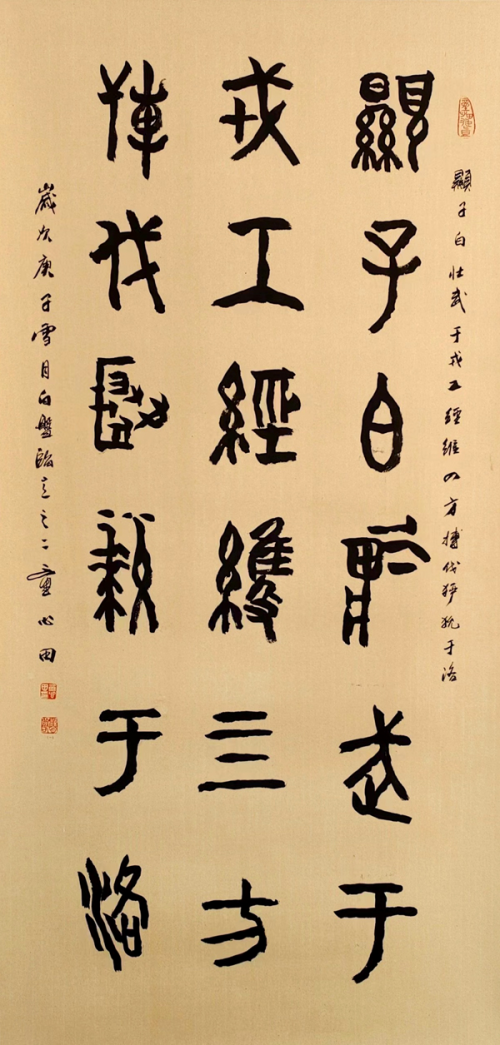 顯子白壯武于戎工經維四方搏伐玁狁于洛
顯子白壯武于
戎工經維三方
搏伐玁狁于洛
歲次庚子雪月白盤臨之二心田